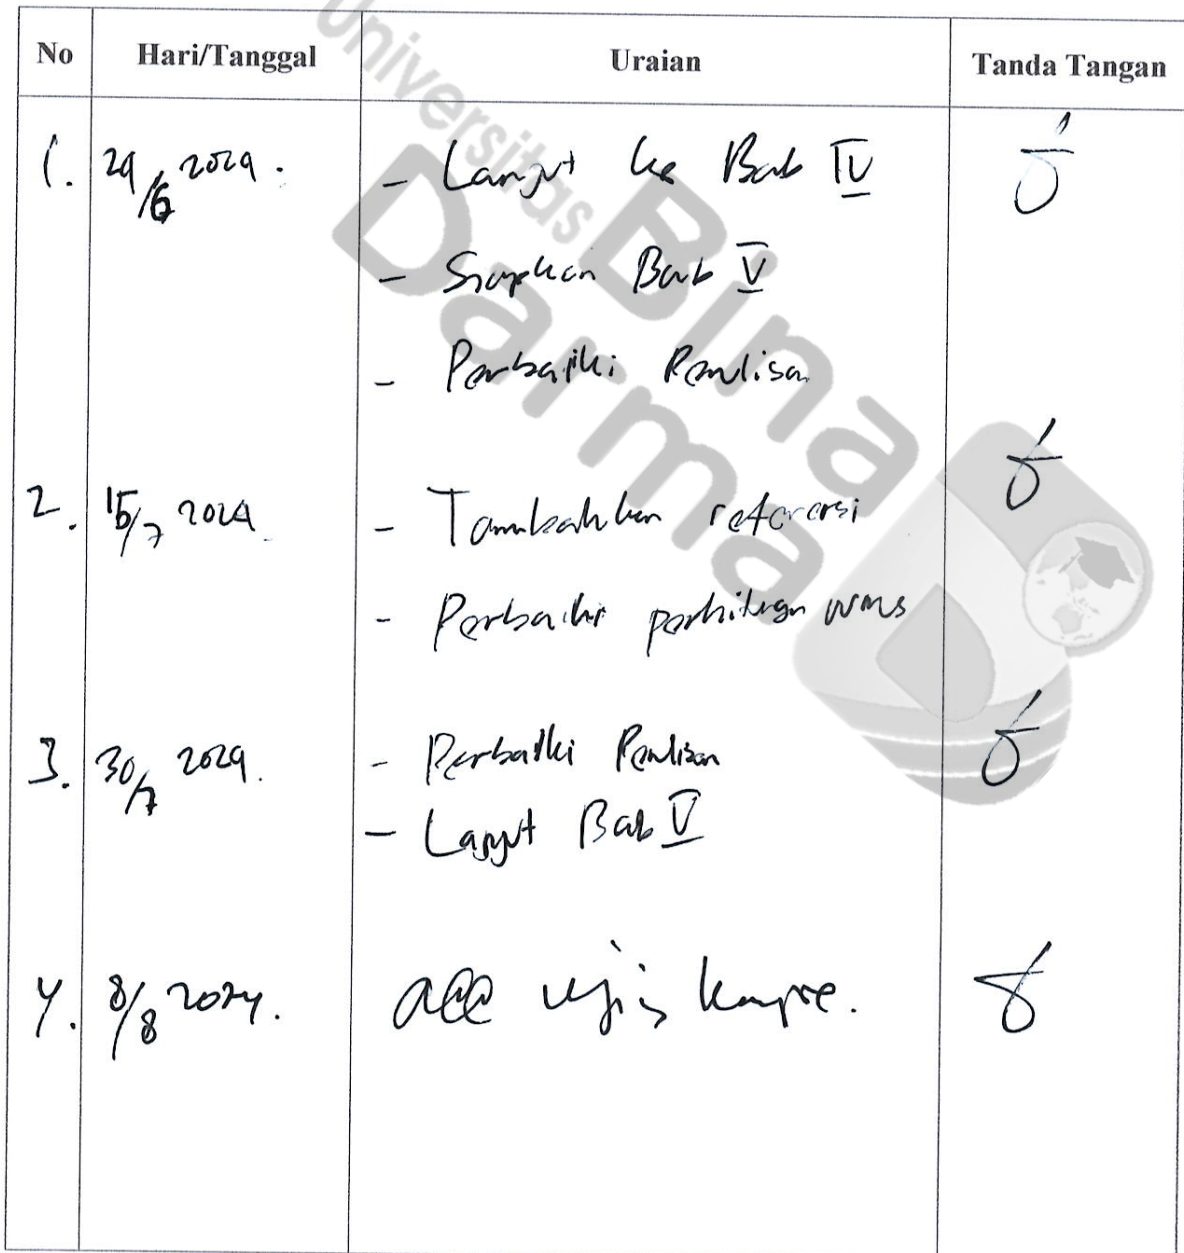 No Hari/Tanggal Uraian Tanda Tangan
Universitas
Bina
Darma
1. 24/6 2024. - Lanjut ke Bab IV
- Siapkan Bab V
- Perbaiki Penulisan
2. 15/7 2024. - Tambahkan referensi
- Perbaiki perhitungan WMS
3. 30/7 2024. - Perbaiki Penulisan
- Lanjut Bab V
4. 8/8 2024. acc ujian kompre.